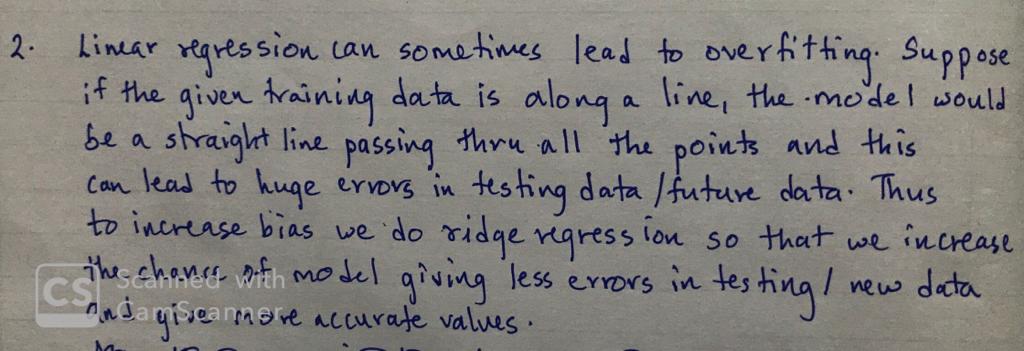 2. Linear regression can sometimes lead to overfitting. Suppose
if the given training data is along a line, the model would
be a straight line passing thru all the points and this
can lead to huge errors in testing data / future data. Thus
to increase bias we do ridge regression so that we increase
the chance of model giving less errors in testing / new data
and give more accurate values.
CS Scanned with
CamScanner